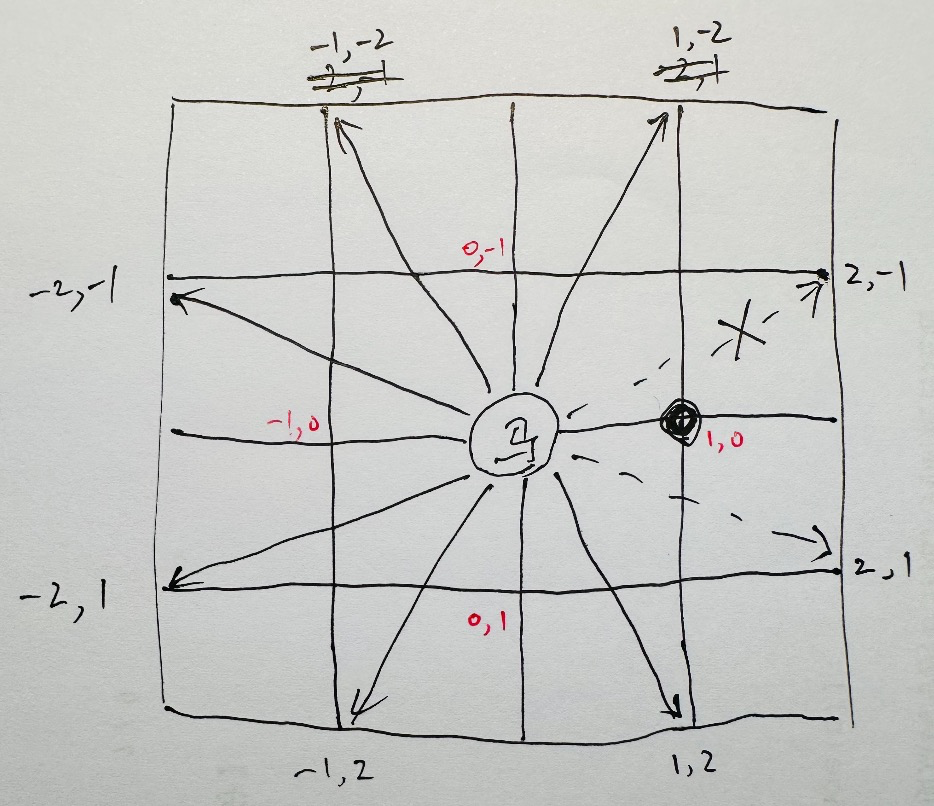 -1,-2
1,-2
0,-1
-2,-1
2,-1
-1,0
马
1,0
-2,1
2,1
0,1
-1,2
1,2